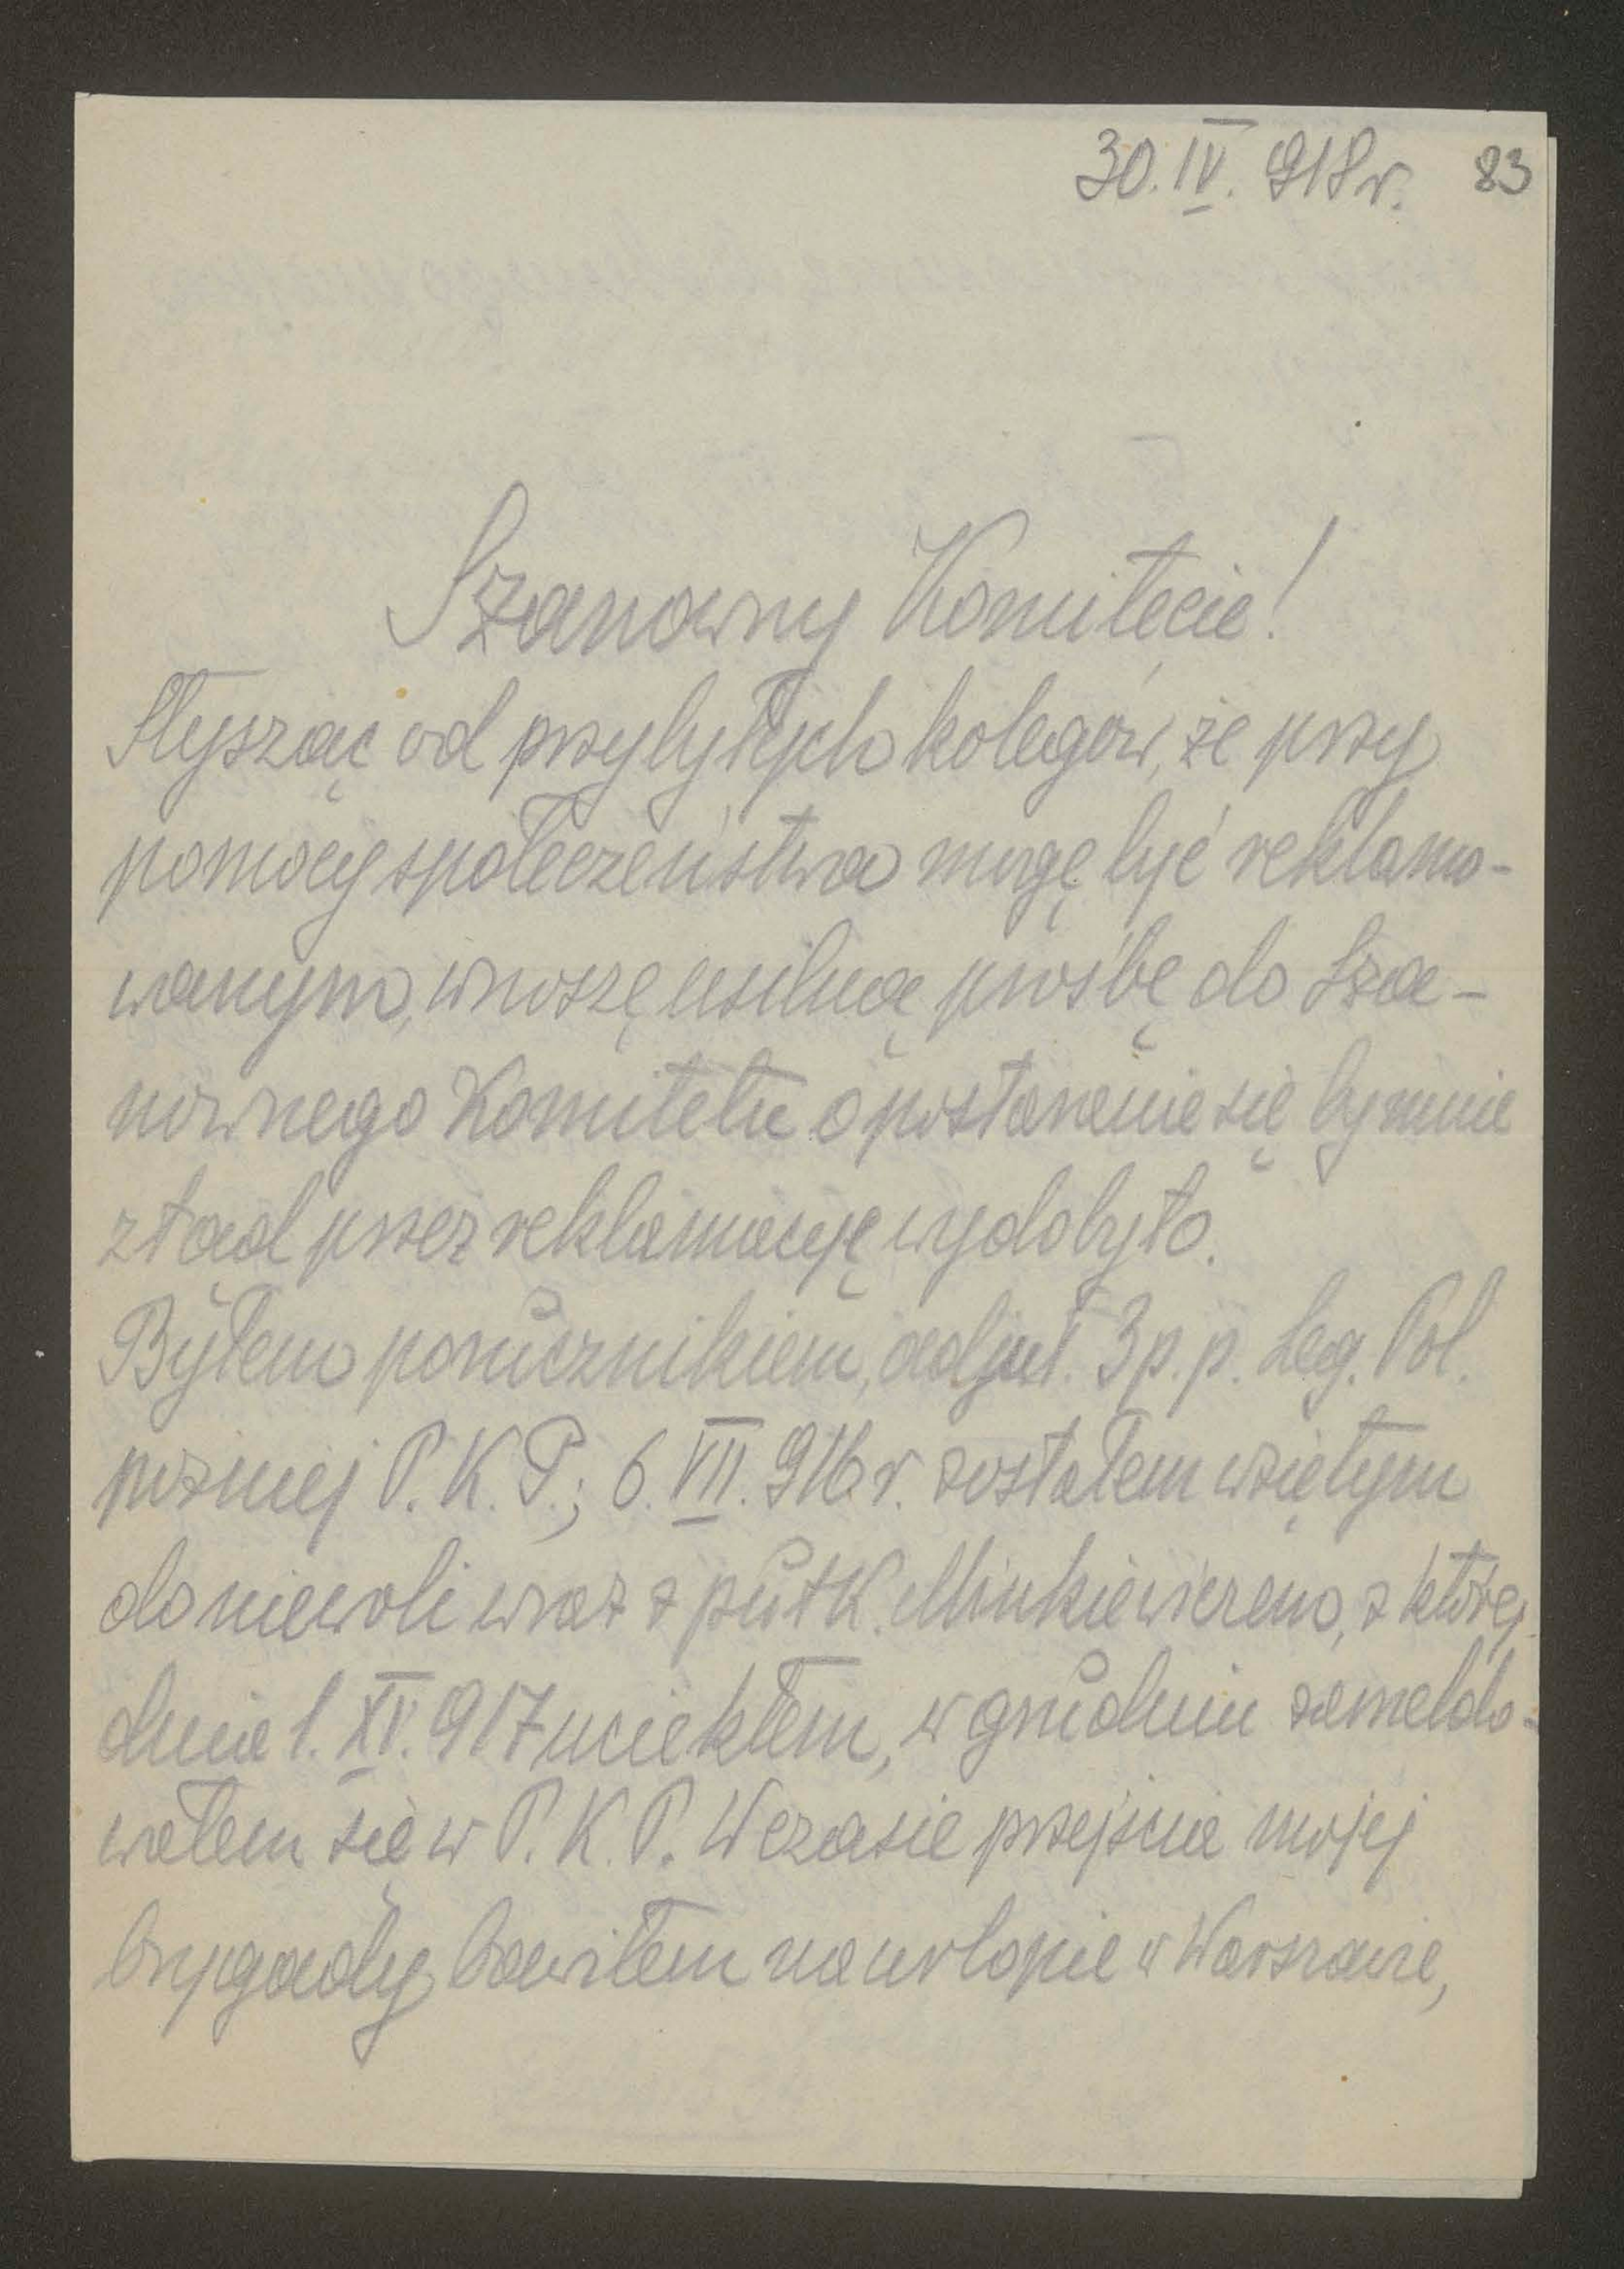 30. IV. 918 r. 83
Szanowny Komitecie!
Słysząc od przybyłych kolegów, że przy
pomocy społeczeństwa mogę być reklamo-
wanym, wnoszę usilną prośbę do Sza-
nownego Komitetu o postaranie się by mnie
ztąd przez reklamacyę wydobyto.
Byłem porucznikiem, adjut. 3 p. p. Leg. Pol.
poźniej P. K. P.; 6. VII. 916 r. zostałem wziętym
do niewoli wraz z pułk. Minkiewiczem, z której
dnia 1. XI. 917 uciekłem, w grudniu zameldo-
wałem się w P. K. P. W czasie przejścia mojej
brygady bawiłem na urlopie w Warszawie,